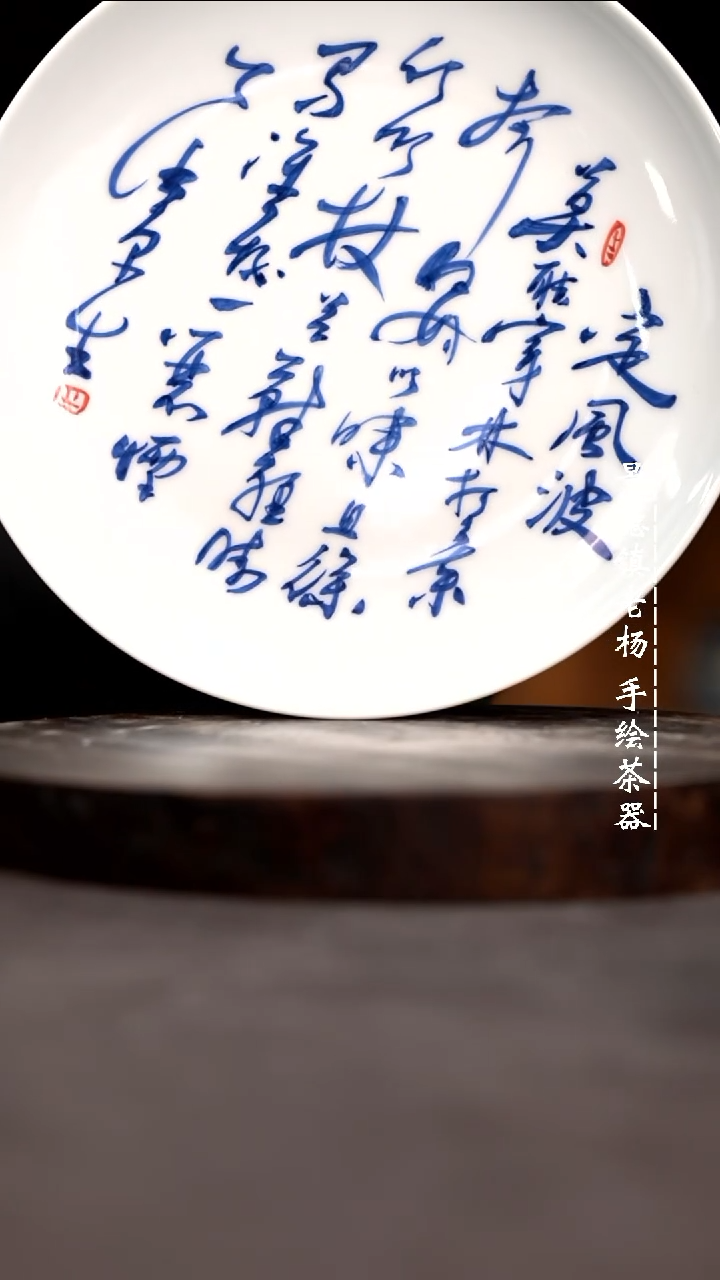 定風波
莫聽穿林打葉
声何妨吟嘯且徐
行竹杖芒鞋輕勝
馬誰怕一蓑煙
雨任平生
景德镇 老杨 手绘茶器